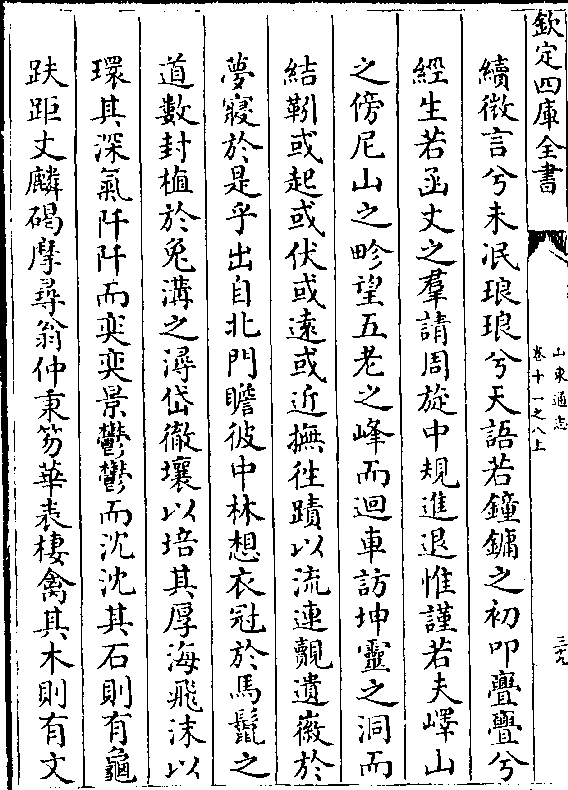 欽定四庫全書
山東通志
卷十一之八上
三九
續微言兮未泯琅琅兮天語若鐘鏞之初叩亹亹兮
經生若函丈之羣請周旋中規進退惟謹若夫嶧山
之傍尼山之畛望五老之峰而迴車訪坤靈之洞而
結靷或起或伏或遠或近撫徃蹟以流連覿遺徽於
夢寢於是乎出自北門瞻彼中林想衣冠於馬鬛之
道數封植於兔溝之潯岱徹壤以培其厚海飛沫以
環其深氣阡阡而奕奕景鬱鬱而沈沈其石則有龜
趺距丈麟碣摩尋翁仲秉笏華表棲禽其木則有文